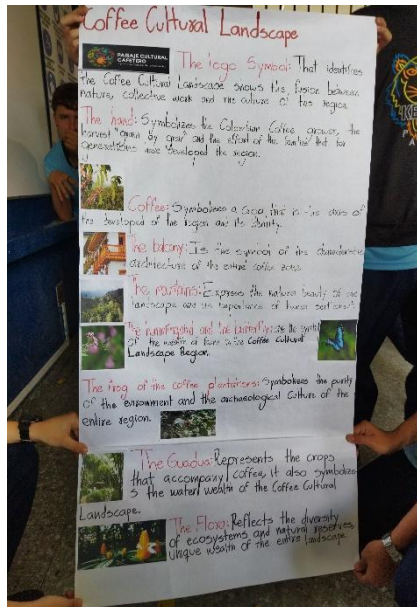 Coffee Cultural Landscape
PAISAJE CULTURAL
CAFETERO
The logo Symbol: That identifies
the Coffee Cultural Landscape shows the fusion between
nature, collective work and the culture of this region
The hand: Symbolizes the Colombian Coffee grower, the
harvest "grain by grain" and the effort of the families that for
generations have developed the region.
Coffee: Symbolizes a crop, that is the axis of
the developed of the region and its identity.
The balcony: Is the symbol of the characteristic
architecture of the entire coffee zone.
The mountains: Expresses the natural beauty of the
landscape and its importance of human
The hummingbird and the butterfly: are the symbol
of the wealth of fauna in the Coffee Cultural
Landscape Region.
The frog of the coffee plantations: Symbolizes the purity
of the environment and the archaeological culture of the
entire region.
The Guadua: Represents the crops
that accompany coffee, it also symbolize
s the water wealth of the Coffee Cultural
Landscape.
The Flora: Reflects the diversity
of ecosystems and natural reserves,
unique wealth of the entire landscape.